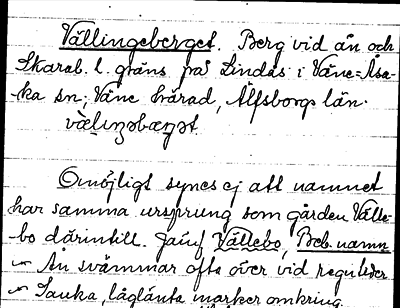 Vällingeberget. Berg vid ån och
Skarab. l. gräns på Lindås i Väne-Åsa-
ka sn; Väne härad, Älfsborgs län.
Omöjligt synes ej att namnet
har samma ursprung som gården Välle-
bo därintill. Jämf Vällebo, Beb. namn
Ån svämmar ofta över vid
låglänta marker omkring